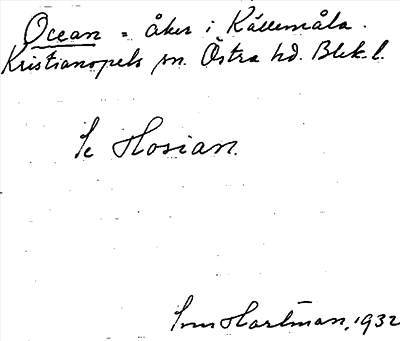 Ocean = åker i Källemåla.
Kristianopels sn. Östra hd. Blek. l.
Se Hosian.
Hartman, 1932